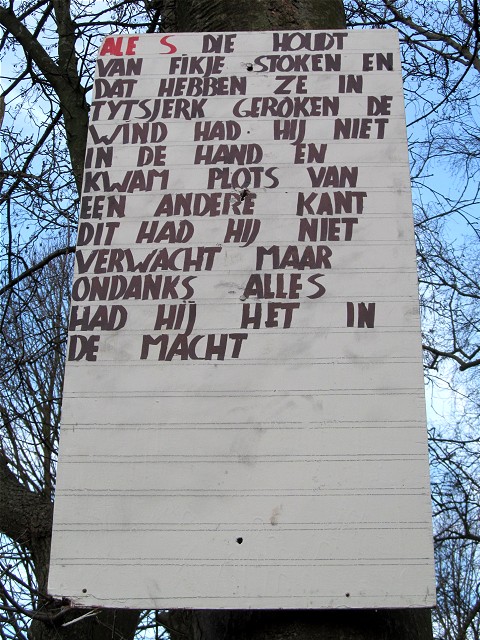 ALE S DIE HOUDT
VAN FIKJE STOKEN EN
DAT HEBBEN ZE IN
TYTSJERK GEROKEN DE
WIND HAD HIJ NIET
IN DE HAND EN
KWAM PLOTS VAN
EEN ANDERE KANT
DIT HAD HIJ NIET
VERWACHT MAAR
ONDANKS ALLES
HAD HIJ HET IN
DE MACHT